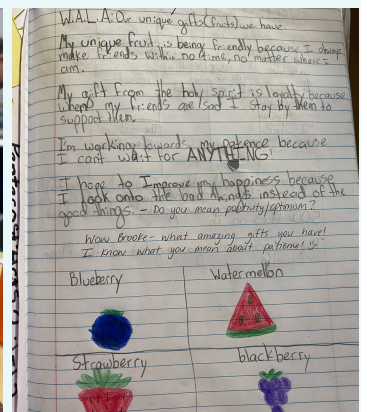 W.A.L.A: Our unique gifts (fruits) we have
My unique fruit is being friendly because I always
make friends within no time, no matter where I
am.
My gift from the holy spirit is loyalty because
when my friends are sad I stay by them to
support them.
I'm working towards my patence because
I cant wait for ANYTHING!
I hope to Improve my happiness because
I look onto the bad things instead of the
good things. - Do you mean positivity/optimism?
Wow Brooke - what amazing gifts you have!
I know what you mean about patience!
Blueberry
Watermellon
Strawberry
blackberry